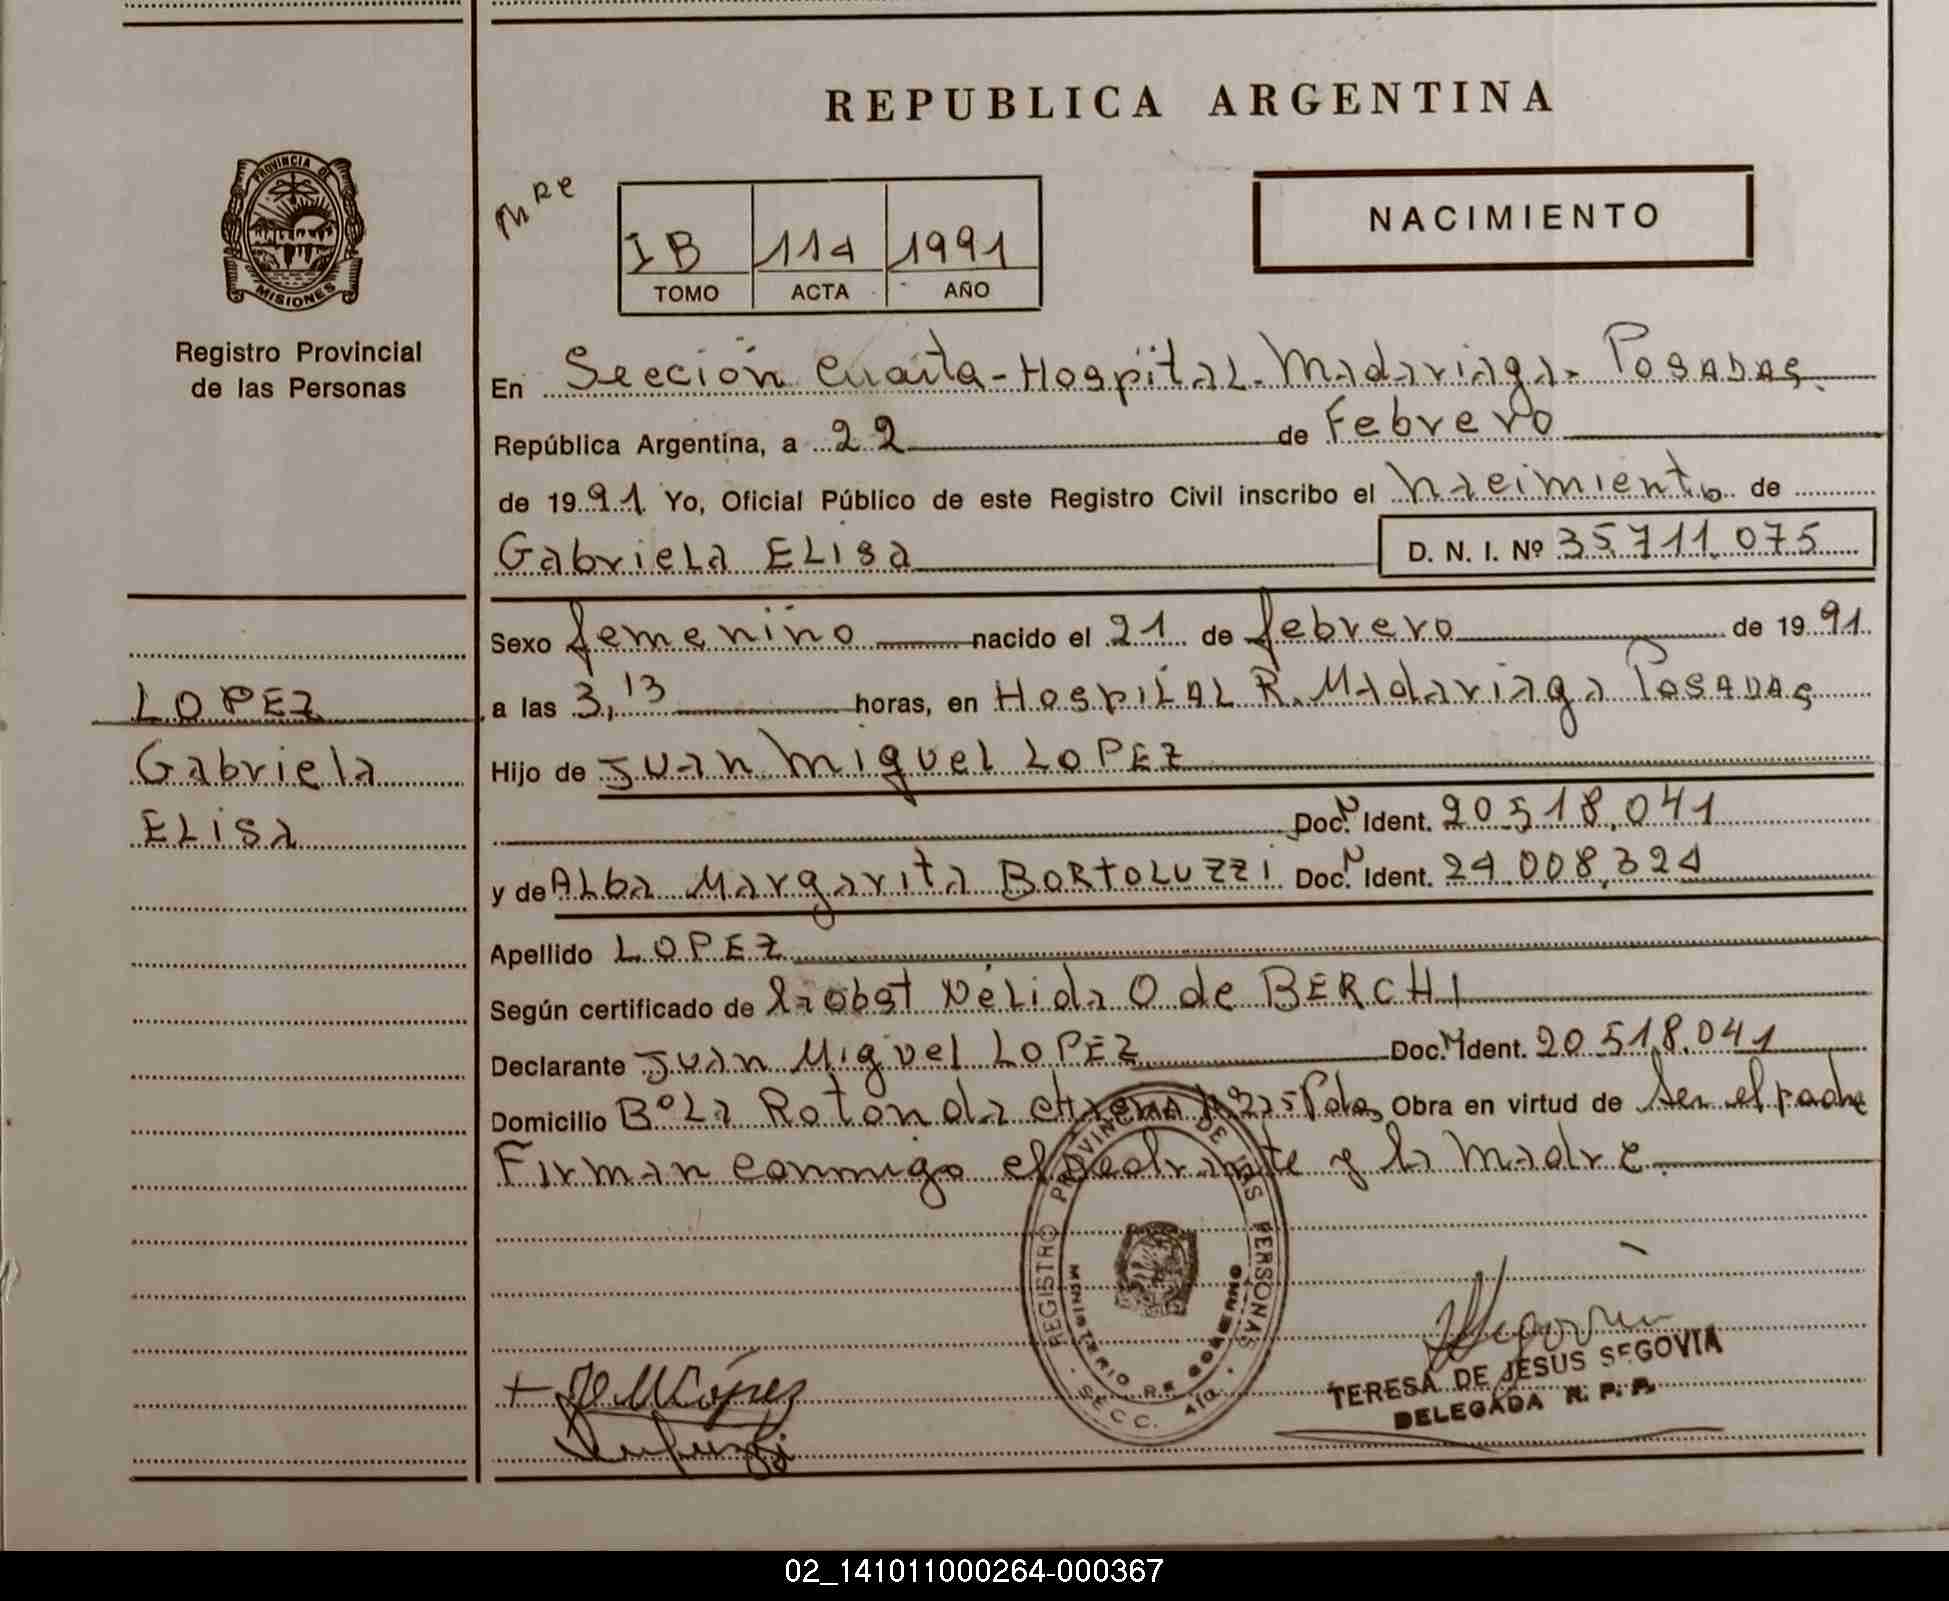 REPUBLICA ARGENTINA
PROVINCIA DE
MISIONES
Registro Provincial
de las Personas
IB 114 1991
TOMO ACTA AÑO
NACIMIENTO
En Sección Cuarta - Hospital - Madariaga - POSADAS
República Argentina, a 22 de Febrero
de 1991 Yo, Oficial Público de este Registro Civil inscribo el nacimiento de
Gabriela ELISA D. N. I. Nº 35711.075
Sexo femenino nacido el 21 de febrero de 1991
a las 3,13 horas, en HospitAL R. Madariaga POSADAS
Hijo de JUAN Miguel LOPEZ
Doc. N Ident. 20518.041
y de ALba Margarita BORTOLUZZI Doc. N Ident. 24.008.324
Apellido LOPEZ
Según certificado de Nélida O de BERCHI
Declarante JUAN Miguel LOPEZ Doc. N Ident. 20518.041
Domicilio Bº La Rotonda Obra en virtud de ser el padre
Firman conmigo el y la madre.
LOPEZ
Gabriela
ELISA
REGISTRO PROVINCIAL DE LAS PERSONAS
MINISTERIO DE GOBIERNO
SECC. 4ta
TERESA DE JESUS SEGOVIA
DELEGADA R. P. P.
02_141011000264-000367